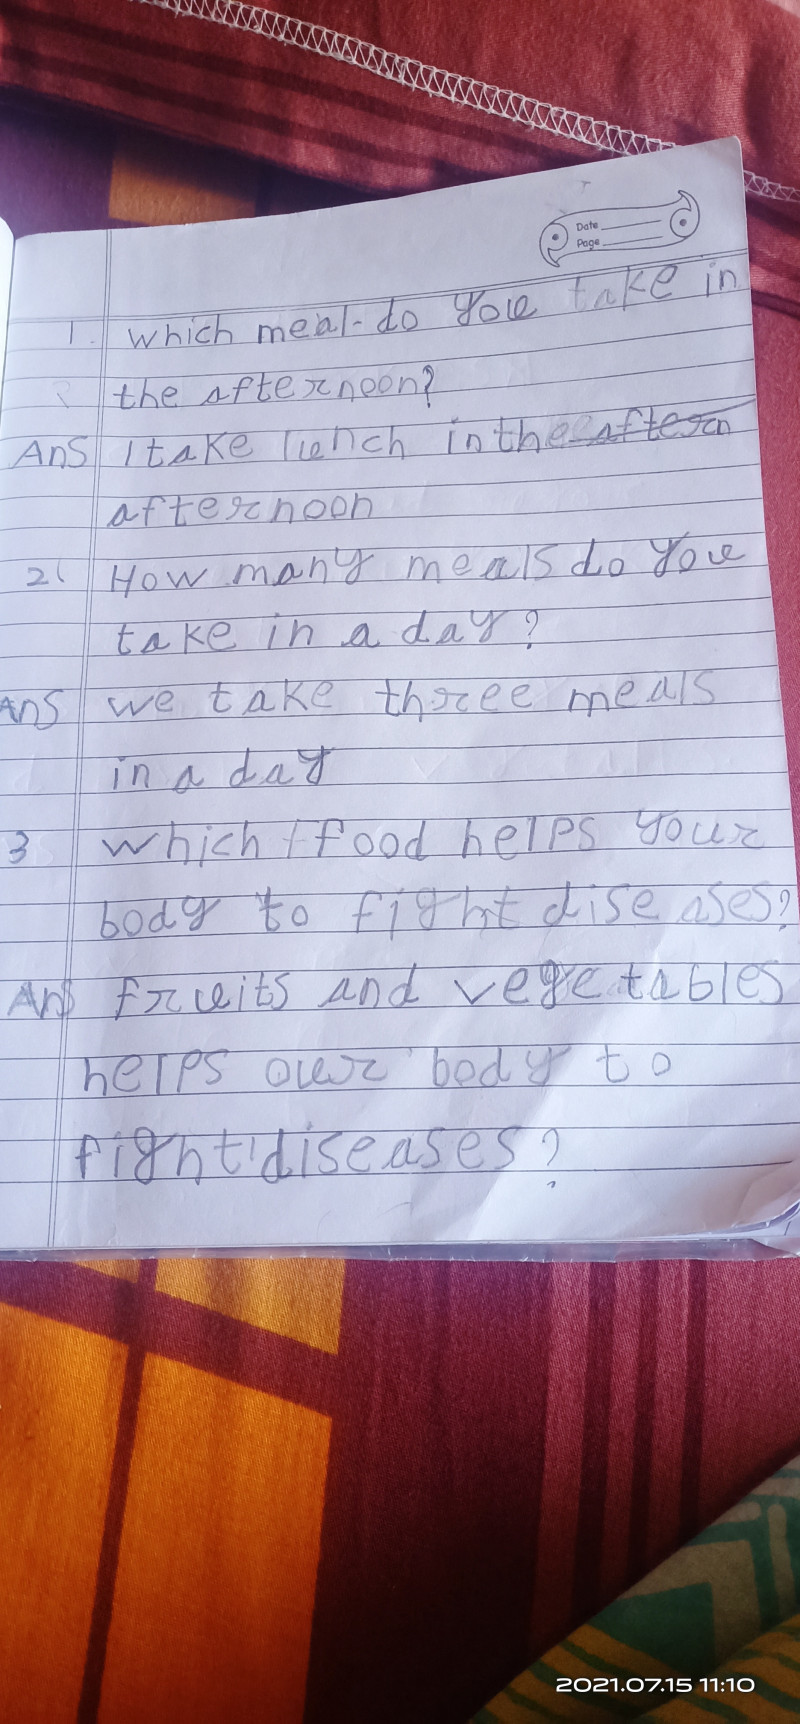 Date
Page
1. which meal-do you take in
the afternoon?
Ans I take lunch in the aftern
afternoon
2( How many meals do you
take in a day?
Ans we take three meals
in a day
3 which food helps your
body to fight diseases?
Ans fruits and vegetables
helps our body to
fight diseases?
2021.07.15 11:10